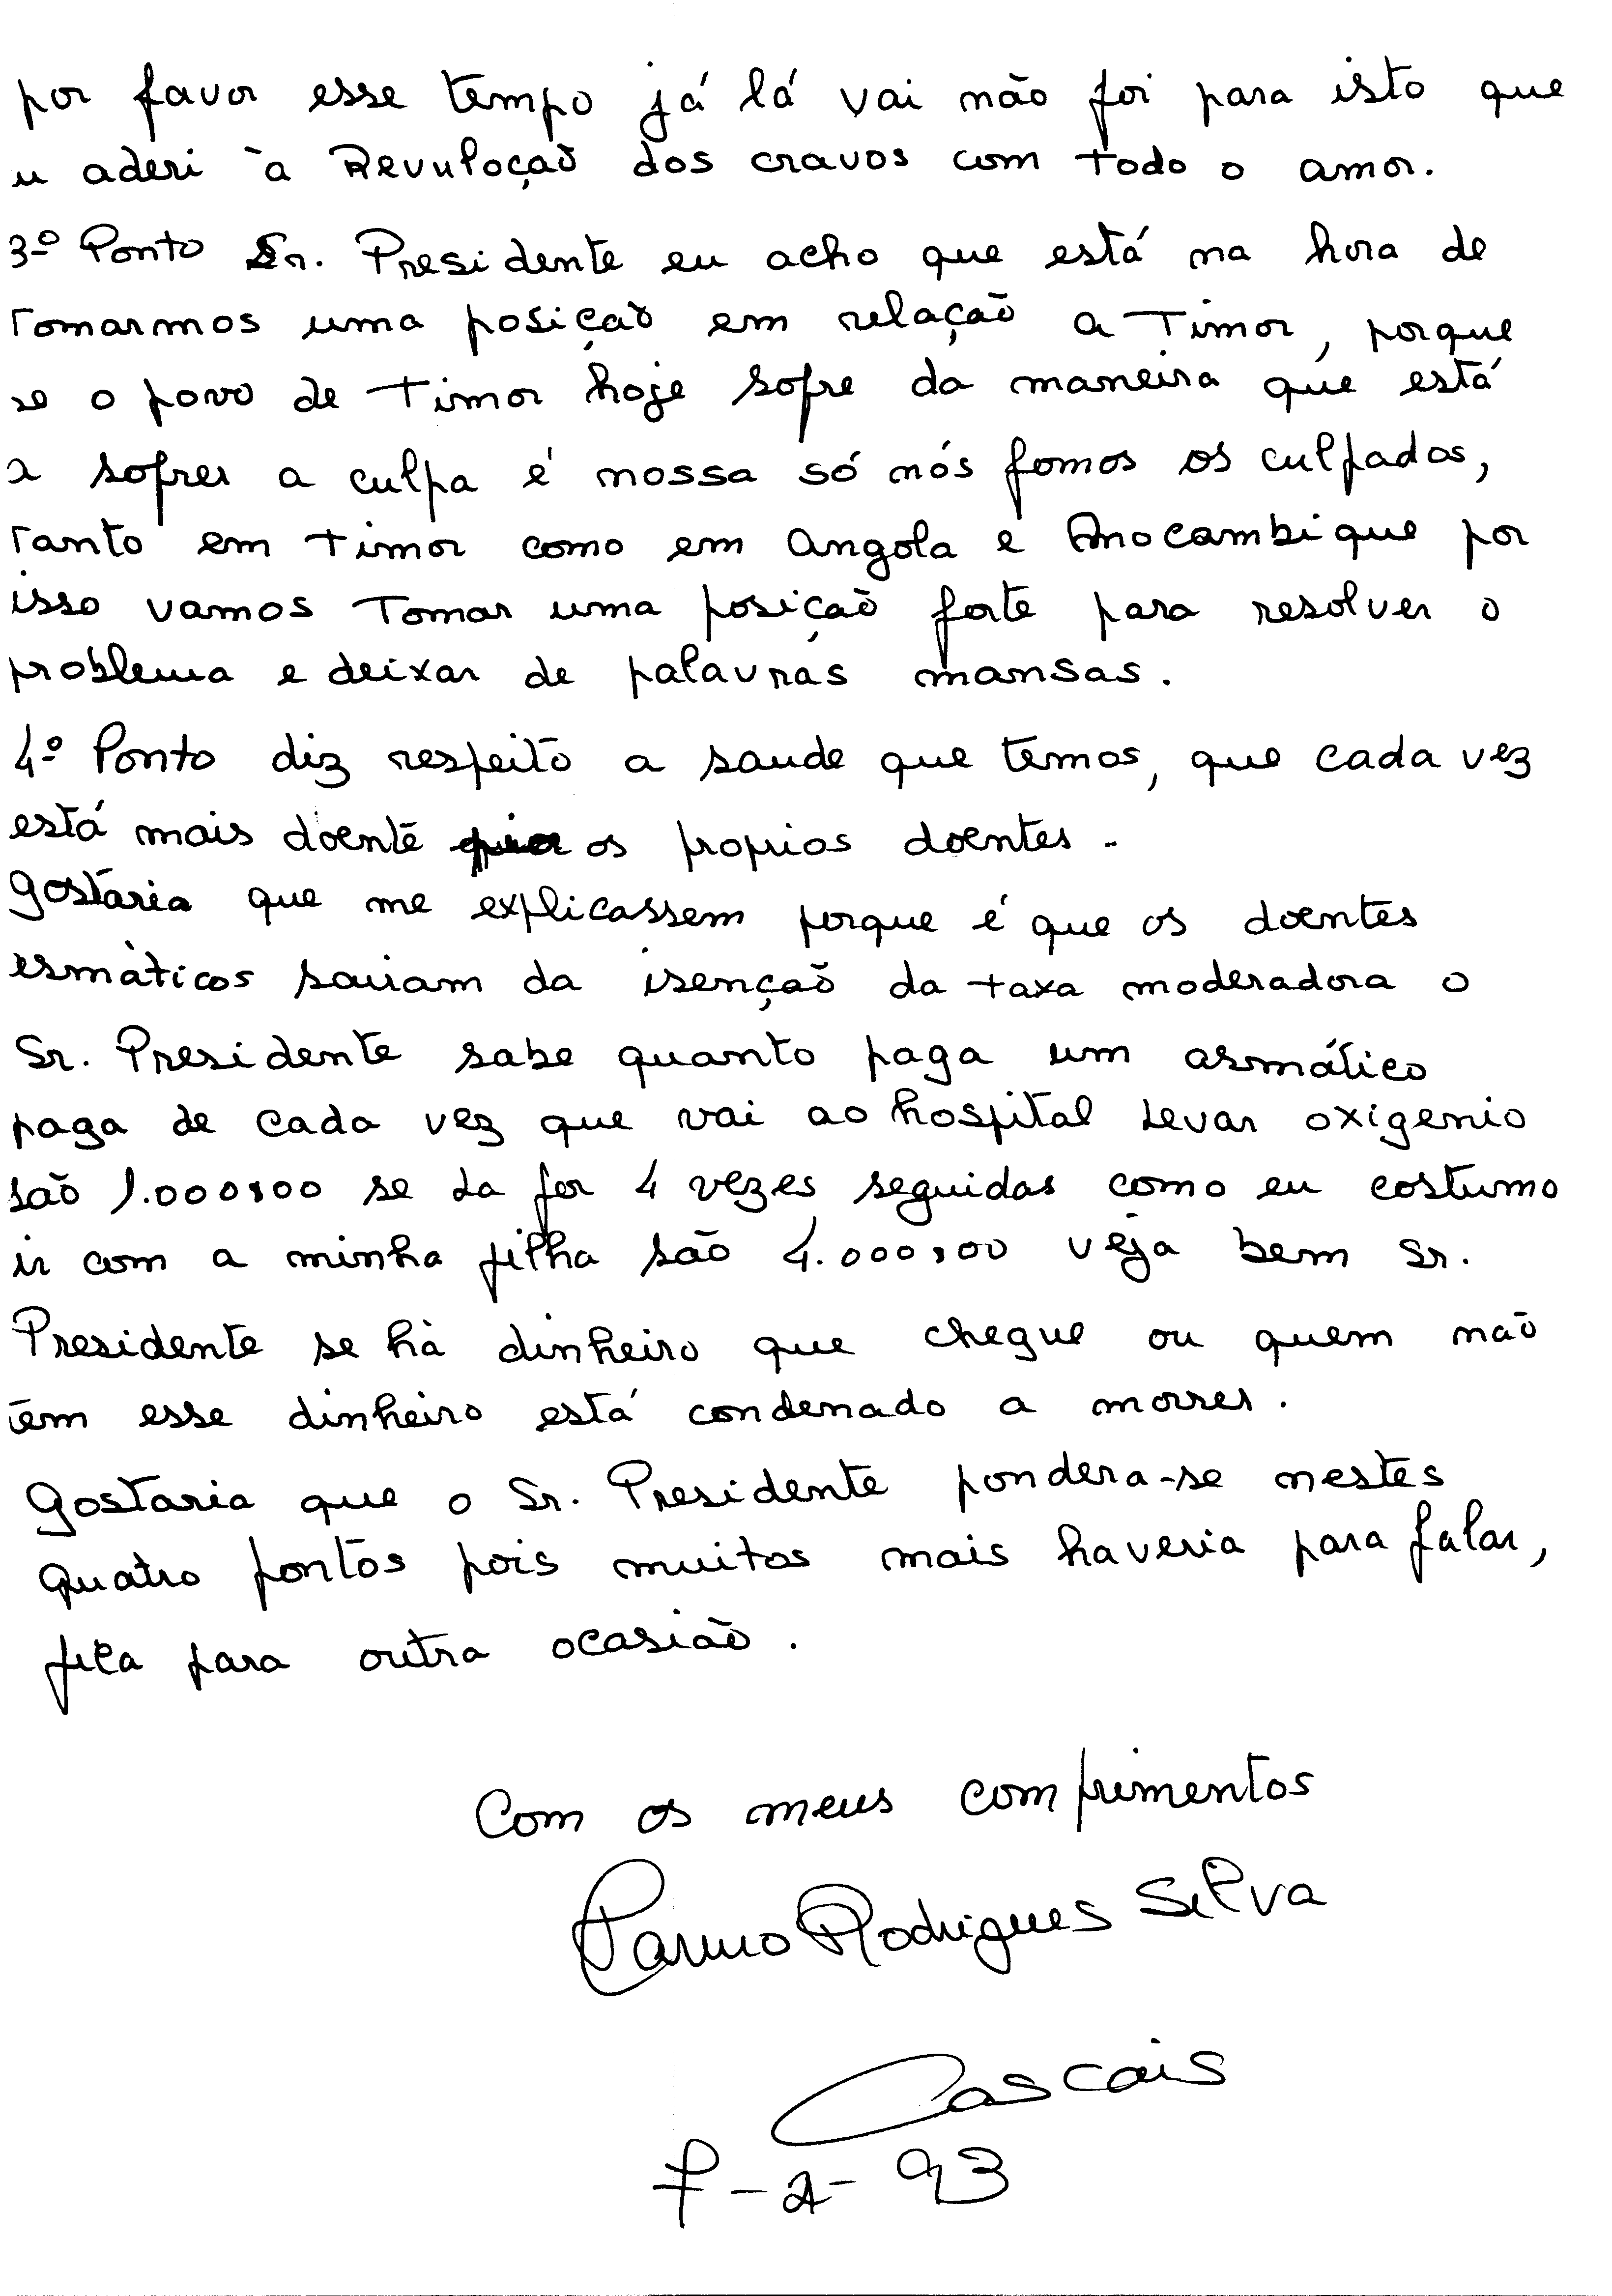 por favor esse tempo já lá vai não foi para isto que
u aderi à Revuloção dos cravos com todo o amor.
3º Ponto Sr. Presidente eu acho que está na hora de
tomarmos uma posição em relação a Timor, porque
se o povo de Timor hoje sofre da maneira que está
a sofrer a culpa é nossa só nós fomos os culpados,
tanto em timor como em Angola e Moçambique por
isso vamos Tomar uma posição forte para resolver o
problema e deixar de palavras mansas.
4º Ponto diz respeito a saude que temos, que cada vez
está mais doente os proprios doentes.
gostaria que me explicassem porque é que os doentes
esmàticos sairam da isenção da taxa moderadora o
Sr. Presidente sabe quanto paga um asmático
paga de cada vez que vai ao hospital levar oxigenio
são 1.000$00 se la for 4 vezes seguidas como eu costumo
ir com a minha filha são 4.000$00 veja bem Sr.
Presidente se hà dinheiro que chegue ou quem não
tem esse dinheiro está condenado a morrer.
gostaria que o Sr. Presidente pondera-se nestes
quatro pontos pois muitos mais haveria para falar,
fica para outra ocasião.
Com os meus comprimentos
Rodrigues Silva
Cascais
7-2-93